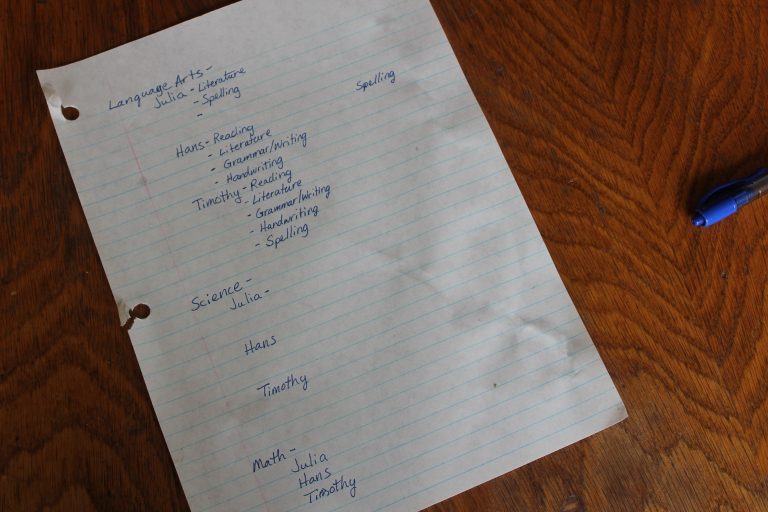 Language Arts -
Julia - Literature
- Spelling
Spelling
-
Hans - Reading
- Literature
- Grammar/Writing
- Handwriting
Timothy - Reading
- Literature
- Grammar/Writing
- Handwriting
- Spelling
Science -
Julia -
Hans
Timothy
Math -
Julia
Hans
Timothy